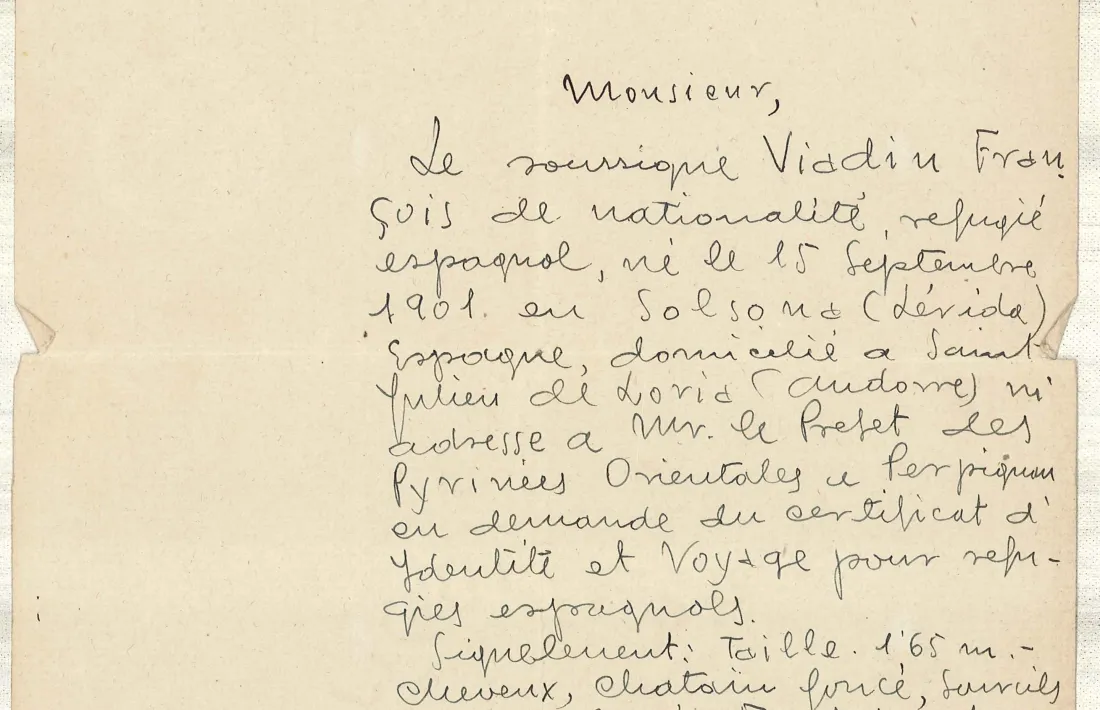 Monsieur,
Le soussigne Viadin Fran
çois de nationalité, refugié
espagnol, né le 15 Septembre
1901. en Solsona (Lérida)
Espagne, domicilié a Saint
Julien de Loria (Andorre) m'
adresse a Mr. le Prefet des
Pyrinées Orientales a Perpignan
en demande du certificat d'
Ydentité et Voyage pour refu-
gies espagnols.
Signblement: Taille. 1'65 m.-
Cheveux, Chatain foncé, Sourcils